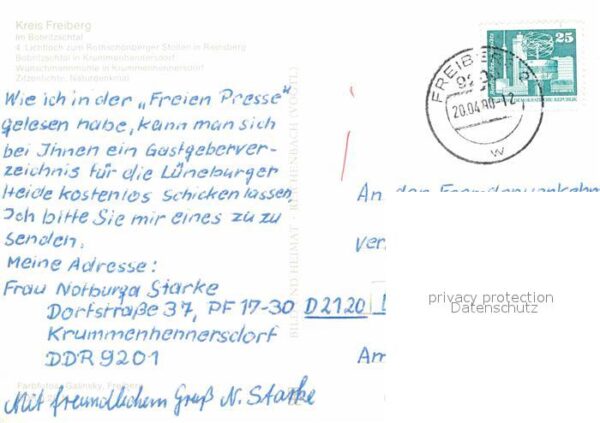 Kreis Freiberg
Im Bobritzschtal
4. Lichtloch zum Rothschönberger Stollen in Reinsberg
Bobritzschtal in Krummenhennersdorf
Wünschmannmühle in Krummenhennersdorf
Zitzenfichte, Naturdenkmal
Wie ich in der „Freien Presse"
gelesen habe, kann man sich
bei Ihnen ein Gastgeberver-
zeichnis für die Lüneburger
Heide kostenlos schicken lassen.
Ich bitte Sie mir eines zu zu
senden.
Meine Adresse:
Frau Notburga Starke
Dorfstraße 37, PF 17-30
Krummenhennersdorf
DDR 9201
Farbfotos: Galinsky, Freiberg
Mit freundlichem Gruß N. Starke
BILD UND HEIMAT REICHENBACH (VOGTL)
25
FREIBERG
9200
20.04.90-12
w
An den Fremdenverkehr
ver
D2120
Am
privacy protection
Datenschutz